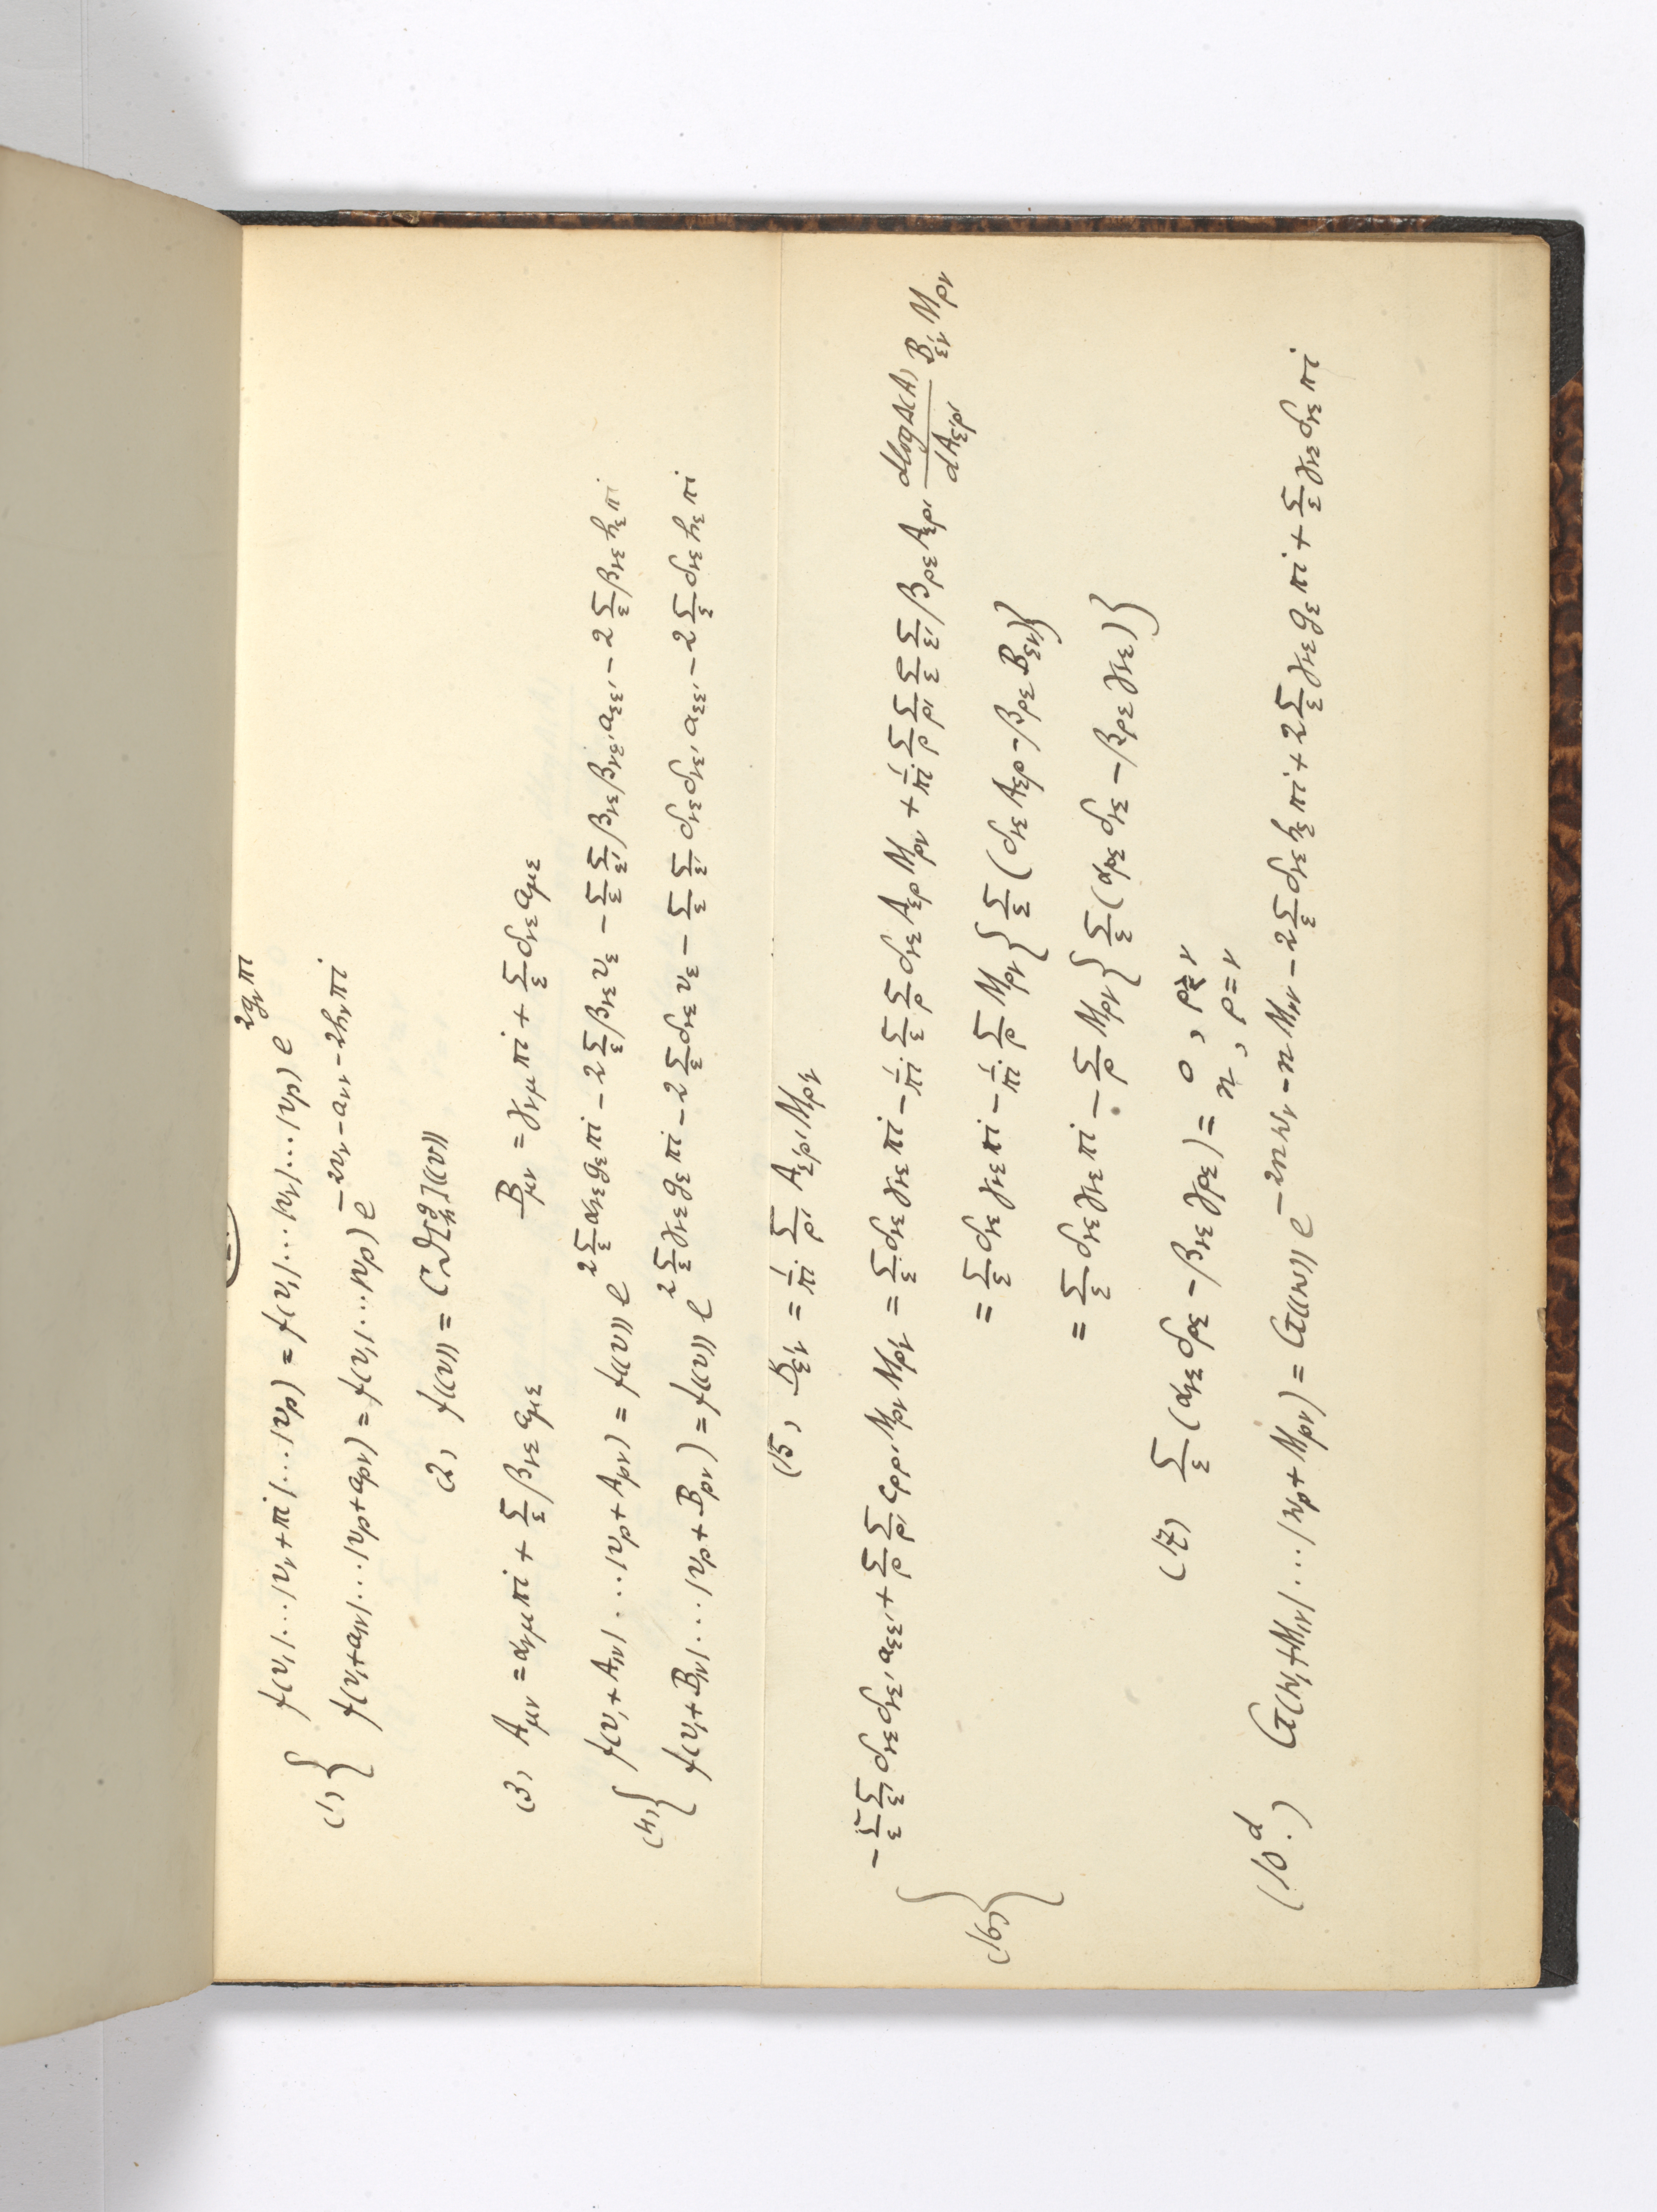 (1) { f(v₁|...|v_ν+πi|...|v_p) = f(v₁|...|v_ν|...|v_p) e^{2g_ν πi}
f(v₁+a_{1ν}|...|v_p+a_{pν}) = f(v₁|...|v_p) e^{-2v_ν-a_{νν}-2h_ν πi}
(2) f((v)) = C ϑ[^g_h]((v))
(3) A_{μν} = α_{νμ} πi + Σ_ε β_{νε} a_{με} B_{μν} = γ_{νμ} πi + Σ_ε δ_{νε} a_{με}
(4) { f(v₁+A_{1ν}|...|v_p+A_{pν}) = f((v)) e^{2Σ_ε α_{νε} g_ε πi - 2Σ_ε β_{νε} v_ε - Σ_ε Σ_ε' β_{νε} β_{νε'} a_{εε'} - 2Σ_ε β_{νε} h_ε πi}
f(v₁+B_{1ν}|...|v_p+B_{pν}) = f((v)) e^{2Σ_ε γ_{νε} g_ε πi - 2Σ_ε δ_{νε} v_ε - Σ_ε Σ_ε' δ_{νε} δ_{νε'} a_{εε'} - 2Σ_ε δ_{νε} h_ε πi}
(15) B_{ε'ν} = 1/πi Σ_ρ' A_{ε'ρ'} M_{ρ'ν}
(16) { -Σ_ε Σ_ε' δ_{νε} δ_{νε'} a_{εε'} + Σ_ρ Σ_ρ' c_{ρρ'} M_{ρν} M_{ρ'ν} = Σ_ε δ_{νε} γ_{νε} πi - 1/πi Σ_ε Σ_ρ δ_{νε} A_{ερ} M_{ρν} + 1/πi Σ_ρ Σ_ρ' Σ_ε Σ_ε' β_{ρε} A_{ερ'} dlogΔ(A)/dA_{ε'ρ'} B_{ε'ν} M_{ρν}
= Σ_ε δ_{νε} γ_{νε} πi - 1/πi Σ_ρ M_{ρν} { Σ_ε (δ_{νε} A_{ερ} - β_{ρε} B_{εν}) }
= Σ_ε δ_{νε} γ_{νε} πi - Σ_ρ M_{ρν} { Σ_ε (α_{ρε} δ_{νε} - β_{ρε} γ_{νε}) }
(17) Σ_ε (α_{νε} δ_{ρε} - β_{νε} γ_{ρε}) = 0, ρ≷ν
n, ρ=ν
(10^d.) G(w₁+M_{1ν}|...|w_p+M_{pν}) = G((w)) e^{-2n w_ν - n M_{νν} - 2Σ_ε δ_{νε} h_ε πi + 2Σ_ε γ_{νε} g_ε πi + Σ_ε γ_{νε} δ_{νε} πi}